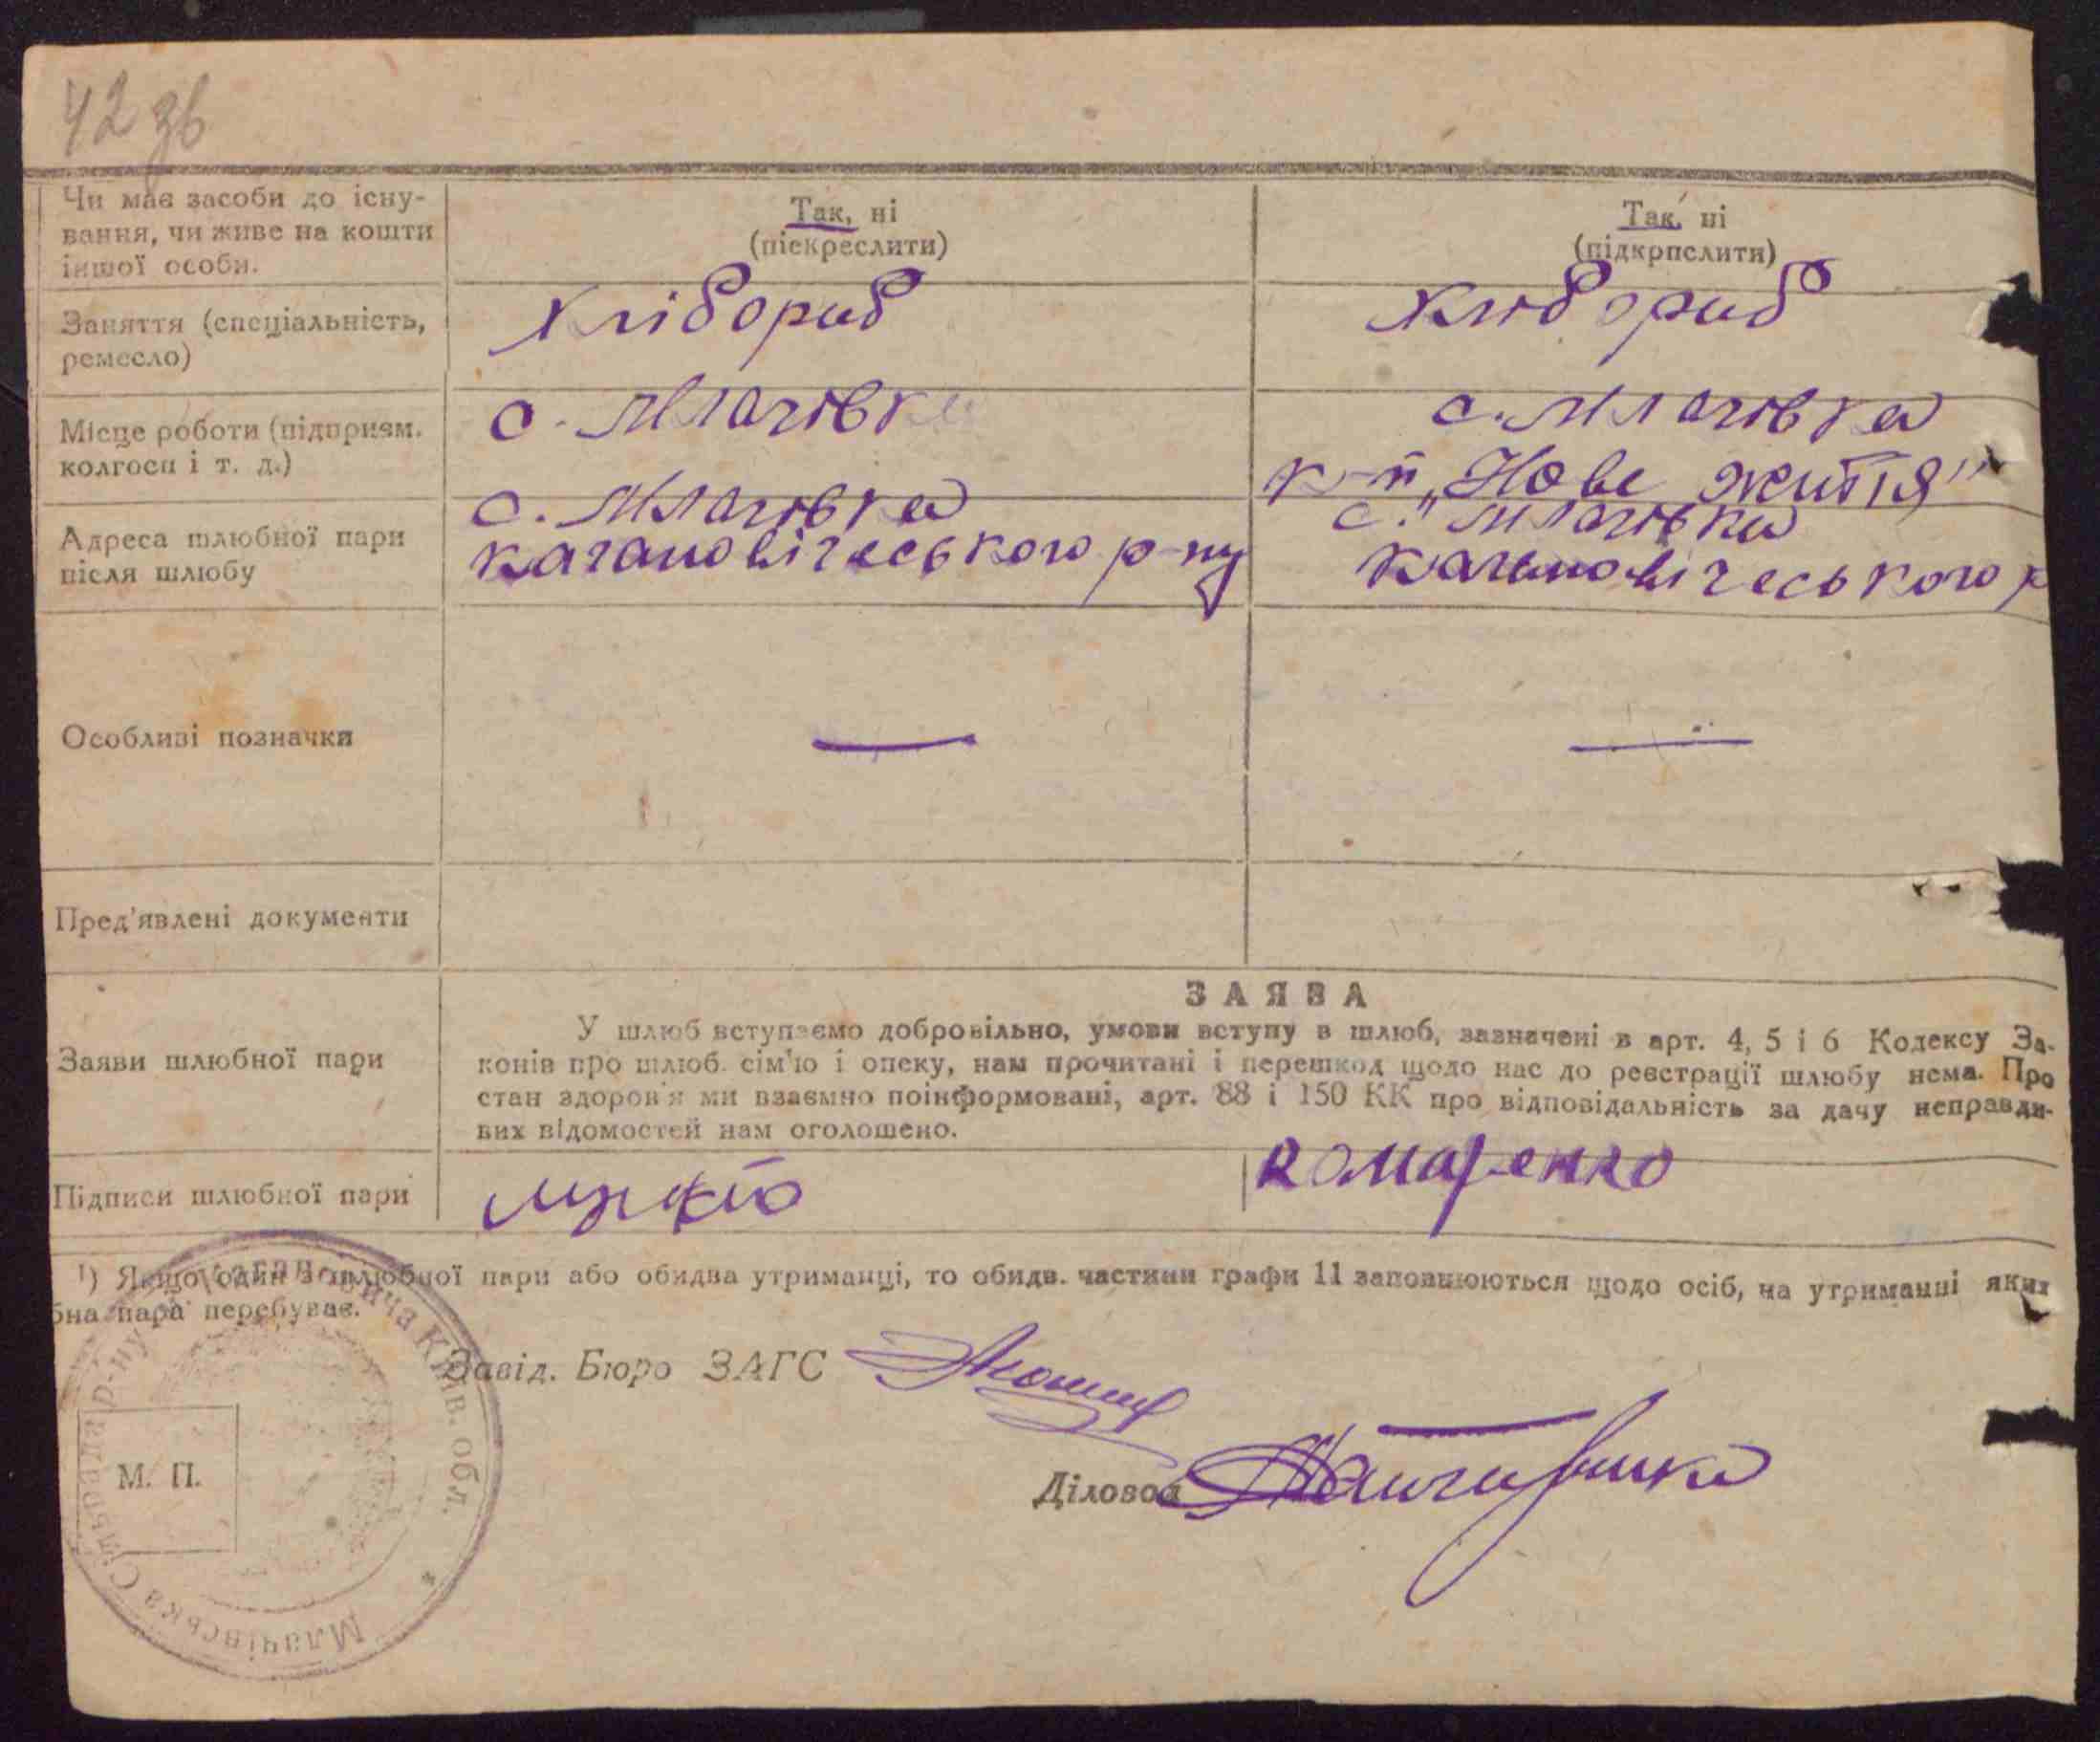 42 зв
Чи має засоби до існу-
вання, чи живе на кошти
іншої особи.
Так, ні
(піекреслити)
Так, ні
(підкрпслити)
Заняття (спеціальність,
ремесло)
Хлібориб
Хлібориб
Місце роботи (підприєм.
колгосп і т. д.)
с. Млачівка
с. Млачівка
к-п „Нове життя"
Адреса шлюбної пари
після шлюбу
с. Млачівка
Кагановічеського р-ну
с. Млачівка
Кагановічеського р
Особливі позначки
—
—
Пред'явлені документи
Заяви шлюбної пари
ЗАЯВА
У шлюб вступаємо добровільно, умови вступу в шлюб, зазначені в арт. 4, 5 і 6 Кодексу За-
конів про шлюб. сім'ю і опеку, нам прочитані і перешкод щодо нас до реєстрації шлюбу нема. Про
стан здоров'я ми взаємно поінформовані, арт. 88 і 150 КК про відповідальність за дачу неправди-
вих відомостей нам оголошено.
Підписи шлюбної пари
Комаренко
¹) Якщо один з шлюбної пари або обидва утриманці, то обидв. частини графи 11 заповнюються щодо осіб, на утриманні яких
бна пара перебуває.
Завід. Бюро ЗАГС
Діловод
М. П.
Млачівська Сільрада р-ну Кагановича Київ. обл.